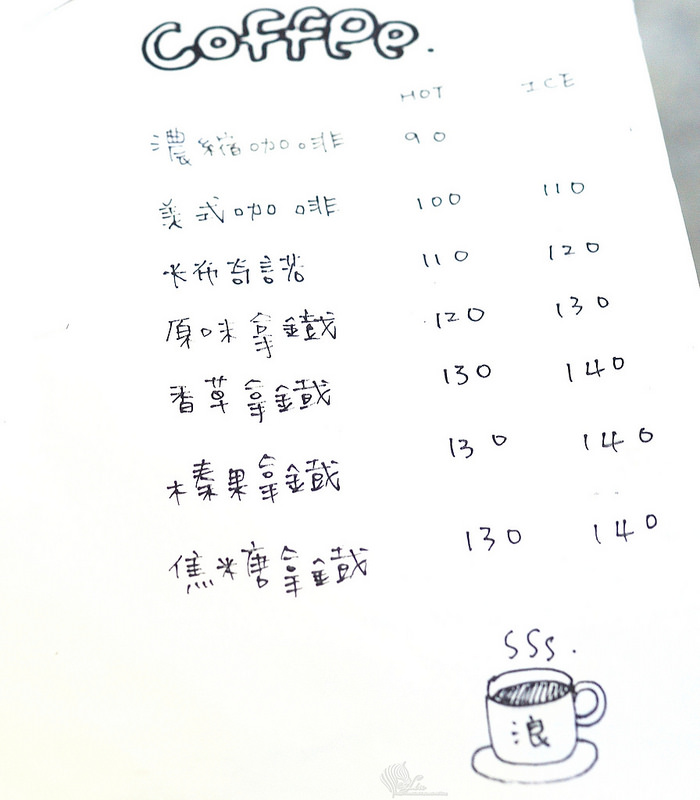 Coffee.
HOT ICE
濃縮咖啡 90
美式咖啡 100 110
卡布奇諾 110 120
原味拿鐵 120 130
香草拿鐵 130 140
榛果拿鐵 130 140
焦糖拿鐵 130 140
SSS.
浪